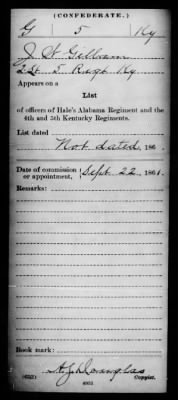 (CONFEDERATE.)
G 5 Ky
J. S. Gillum
2 Lt. 5 Regt Ky
Appears on a
List
of officers of Hale's Alabama Regiment and the
4th and 5th Kentucky Regiments.
List dated
Not dated, 186 .
Date of commission
or appointment, Sept 22, 1861.
Remarks:
Book mark:
(635)
Copyist.